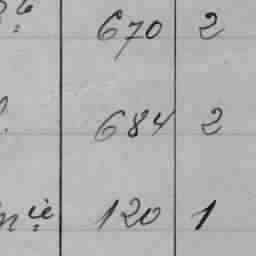 670 2
684 2
n ie 120 1